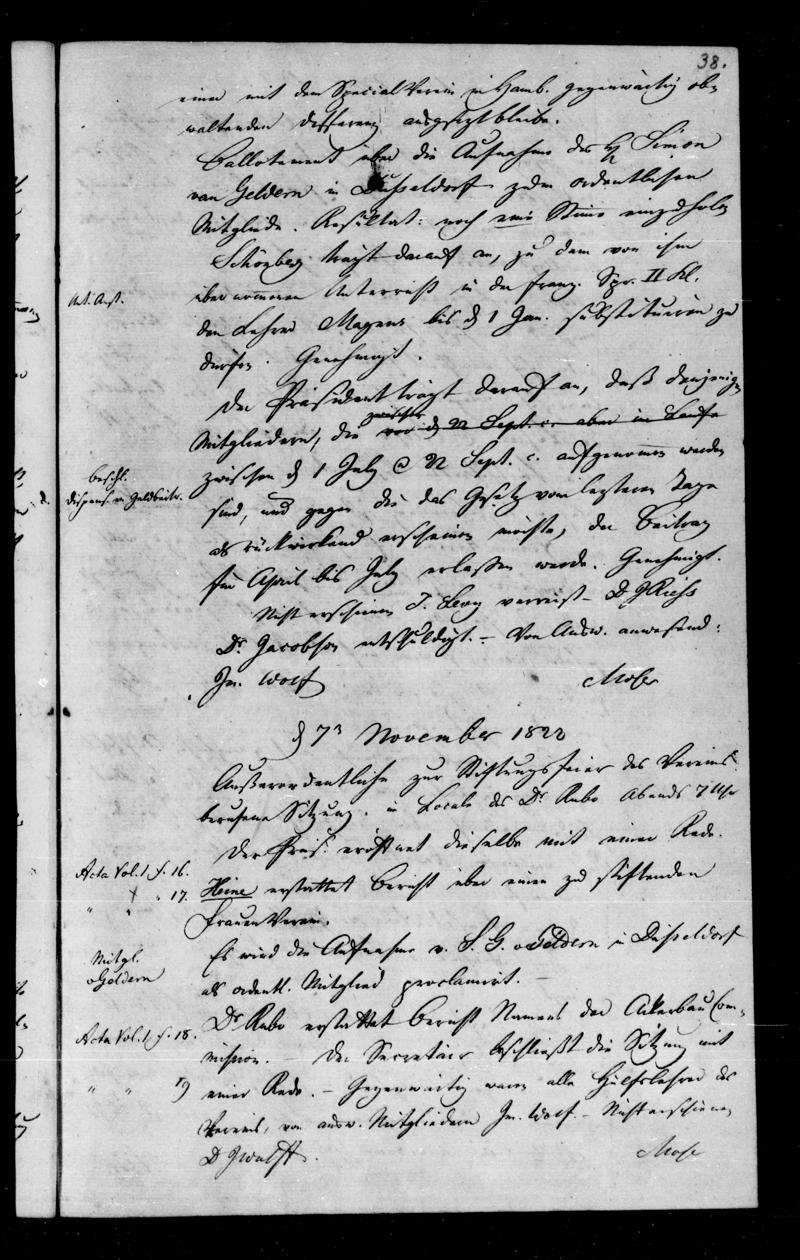 38.
einer mit dem Special Verein in Hamb. gegenwärtig ob-
waltenden Differenz ausgesezt bleibe.
Ballotement über die Aufnahme des H. Simon
van Geldern in Düsseldorf zum ordentlichen
Mitgliede. Resultat: noch eine Stimme einzuholen
Schönberg trägt darauf an, zu dem von ihm
Unt. Anst.
übernommenen Unterricht in der franz. Spr. II Kl.
den Lehrer Magens bis d 1 Jan. substituiren zu
dürfen. Genehmigt.
Der Präsident trägt darauf an, daß denjenigen
Mitgliedern, die zwischen vor d 22 Sept. c. aber im Laufe
zwischen d 1 July & 22 Sept. c. aufgenommen worden
beschl.
Dispens. v. Geldbeitr.
sind, und gegen die das Gesetz vom lezteren Tage
als rückwirkend erscheinen möchte, der Beitrag
für April bis July erlassen werde. Genehmigt.
Nicht erschienen J. Levy verreist – D J Riess
Dr. Jacobson entschuldigt. – Von Ausw. anwesend:
Im. Wolf
Moser
d 7n November 1822
Außerordentliche zur Stiftungsfeier des Vereins
berufene Sitzung. im Locale des Dr. Rubo Abends 7 Uhr
Der Präs. eröffnet dieselbe mit einer Rede.
Acta Vol. 1 f. 16.
" " 17.
Heine erstattet Bericht über einen zu stiftenden
Frauen Verein.
Es wird die Aufnahme v. S. G. v Geldern in Düsseldorf
Mitgl.
v Geldern
als ordentl. Mitglied proclamirt. –
Dr. Rubo erstattet Bericht Namens der Ackerbau Com-
Acta Vol. 1. f. 18.
mission. – Der Secretair beschließt die Sitzung mit
" " 19
einer Rede. – Gegenwärtig waren alle Hülfslehrer des
Vereins, von ausw. Mitgliedern Im. Wolf. – Nicht erschienen
Moser